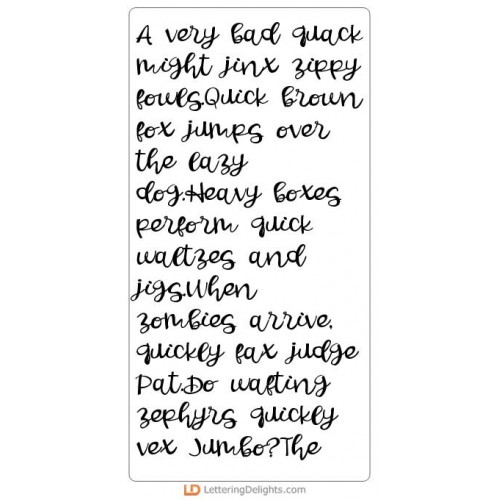 A very bad quack
might jinx zippy
fowls.Quick brown
fox jumps over
the lazy
dog.Heavy boxes
perform quick
waltzes and
jigs.When
zombies arrive,
quickly fax judge
Pat.Do wafting
zephyrs quickly
vex Jumbo?The
LD LetteringDelights.com